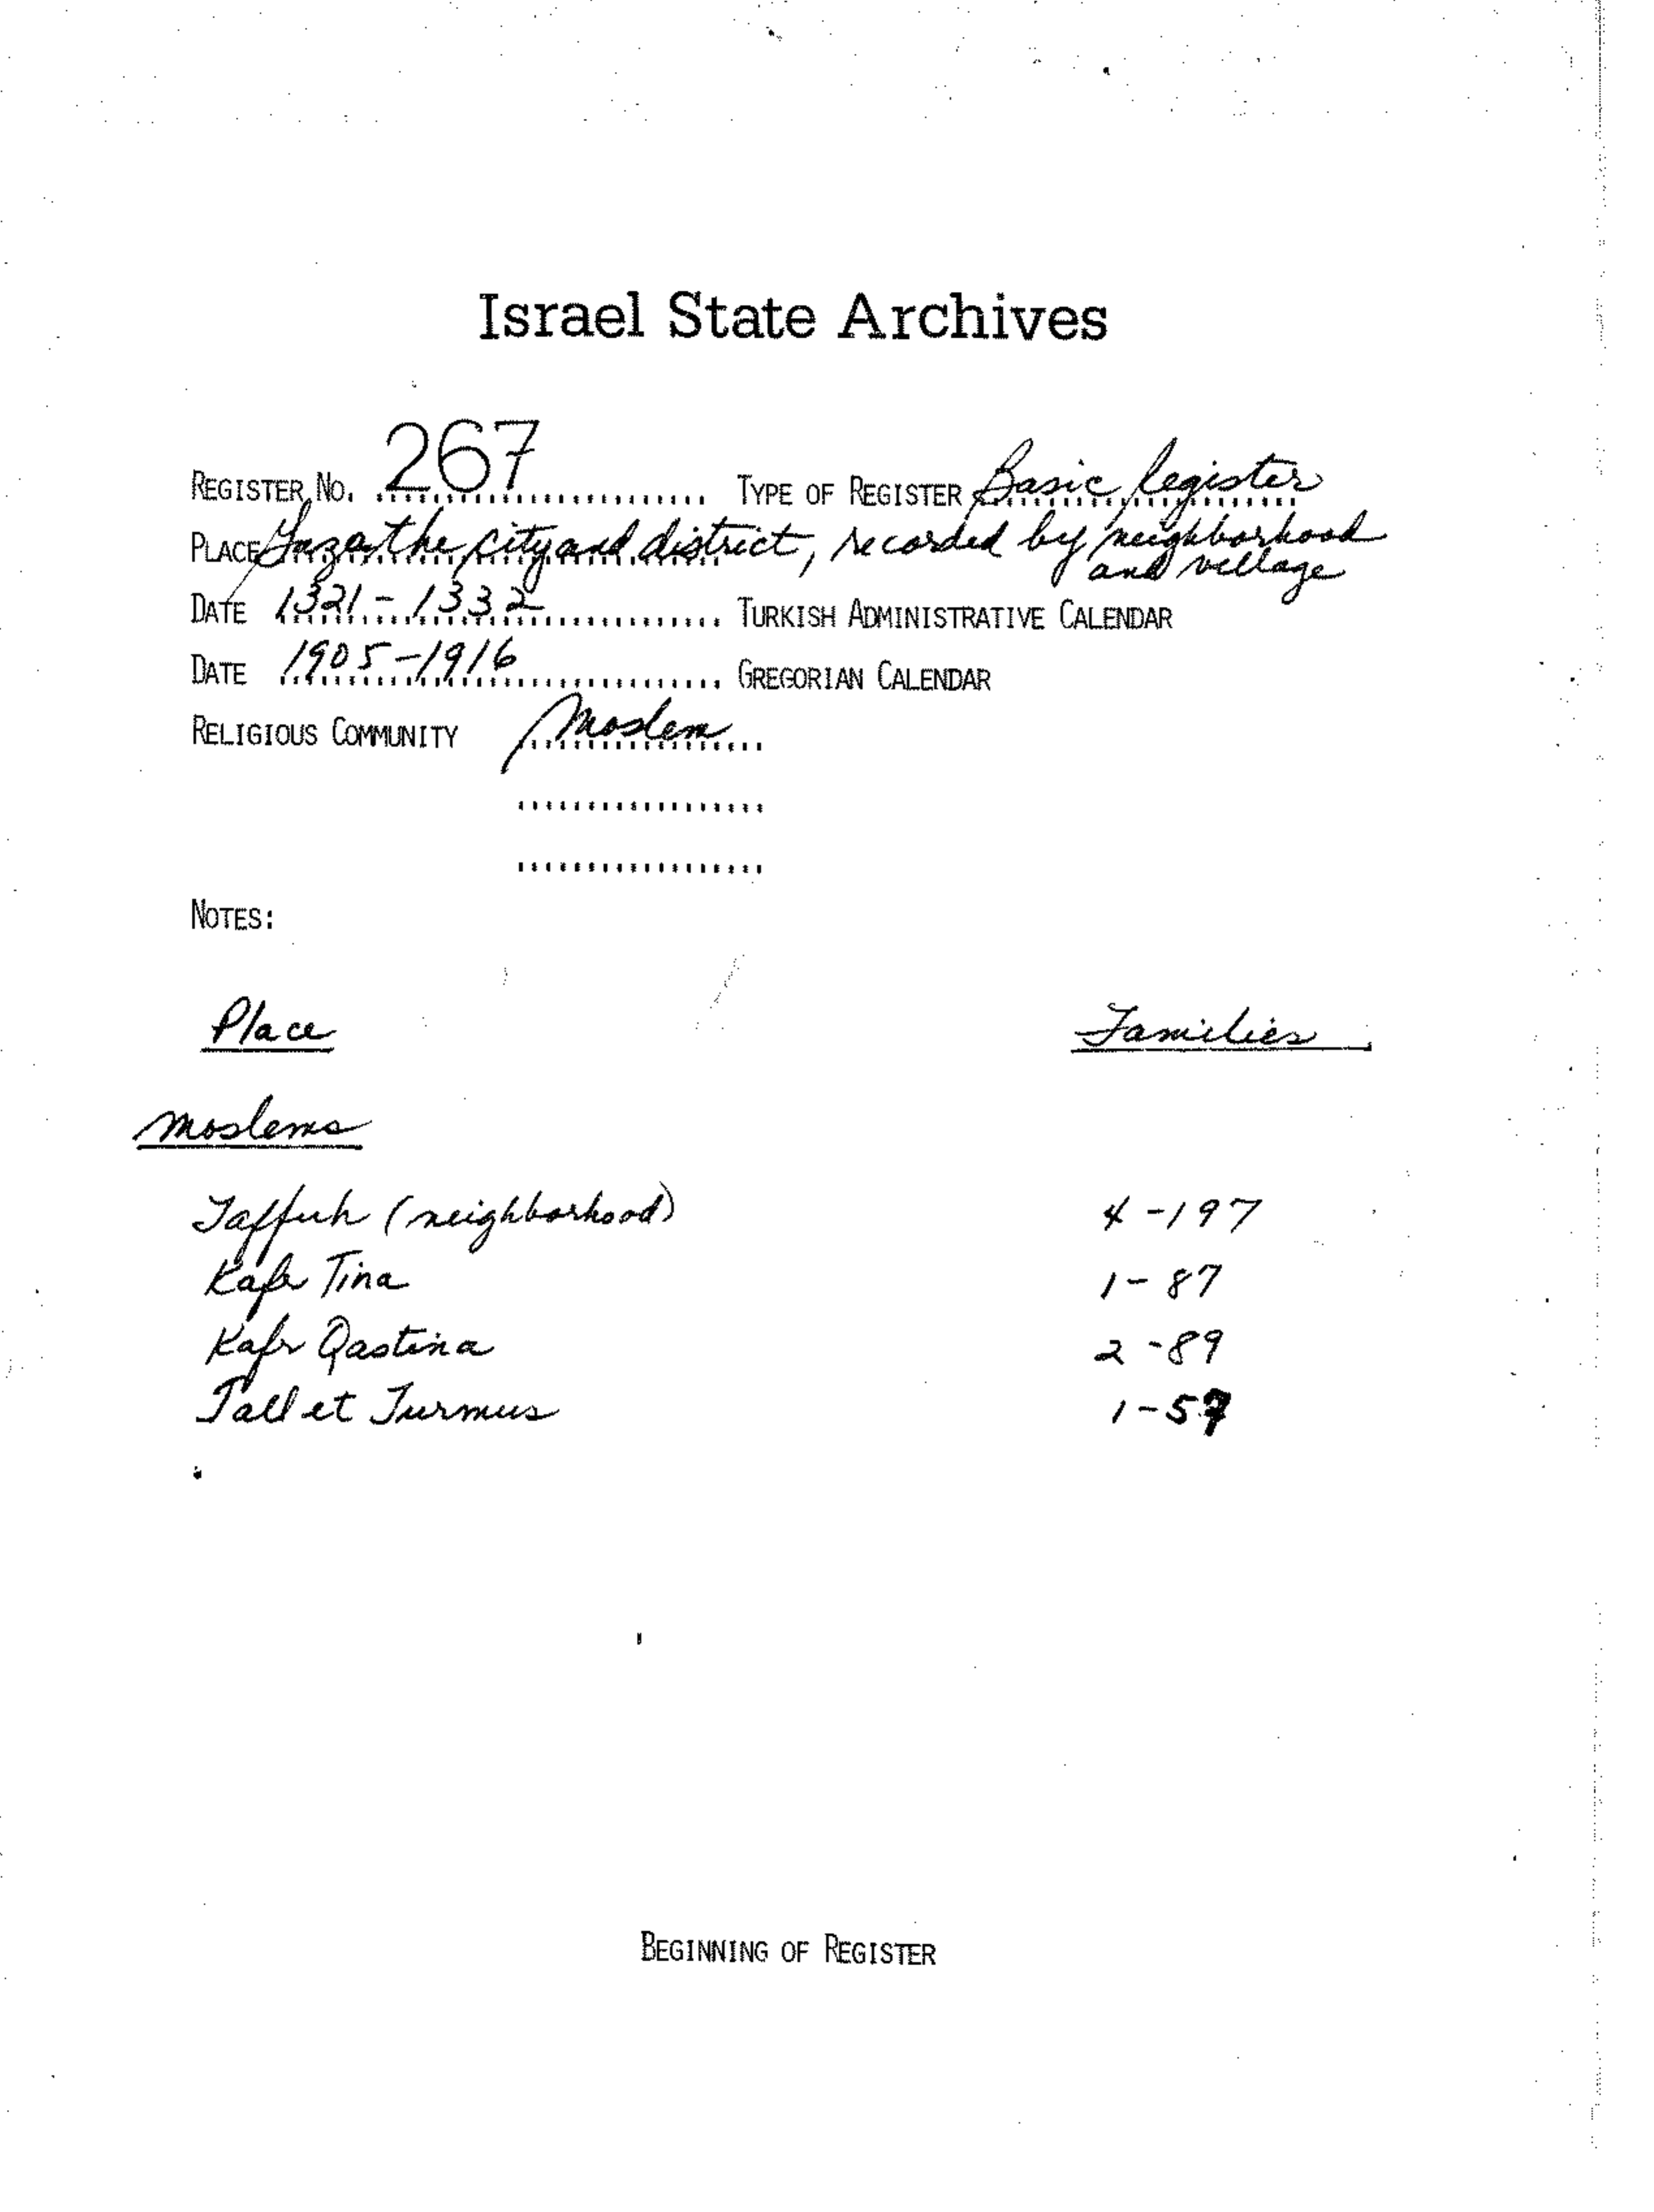 Israel State Archives
REGISTER NO. 267 TYPE OF REGISTER Basic Register
PLACE Gaza the city and district, recorded by neighborhood
and village
DATE 1321-1332 TURKISH ADMINISTRATIVE CALENDAR
DATE 1905-1916 GREGORIAN CALENDAR
RELIGIOUS COMMUNITY Moslem
NOTES:
Place Families
Moslems
Taffuh (neighborhood) 4-197
Kafr Tina 1-87
Kafr Qastina 2-89
Tall et Turmus 1-57
BEGINNING OF REGISTER